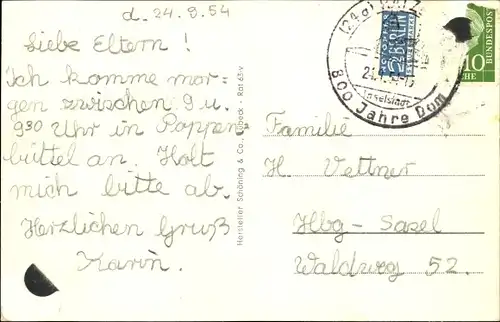 d. 24.9.54
Liebe Eltern!
Ich komme mor-
gen zwischen 9 u.
9³⁰ Uhr in Poppen-
büttel an. Holt
mich bitte ab.
Herzlichen Gruß
Karin.
Hersteller Schöning & Co., Lübeck · Rat 65-v
(24a)
Inselstadt
800 Jahre Dom
NOTOPFER
2 BERLIN
10
DEUTSCHE BUNDESPOST
Familie
H. Vettner
Hbg-Sasel
Waldweg 52.